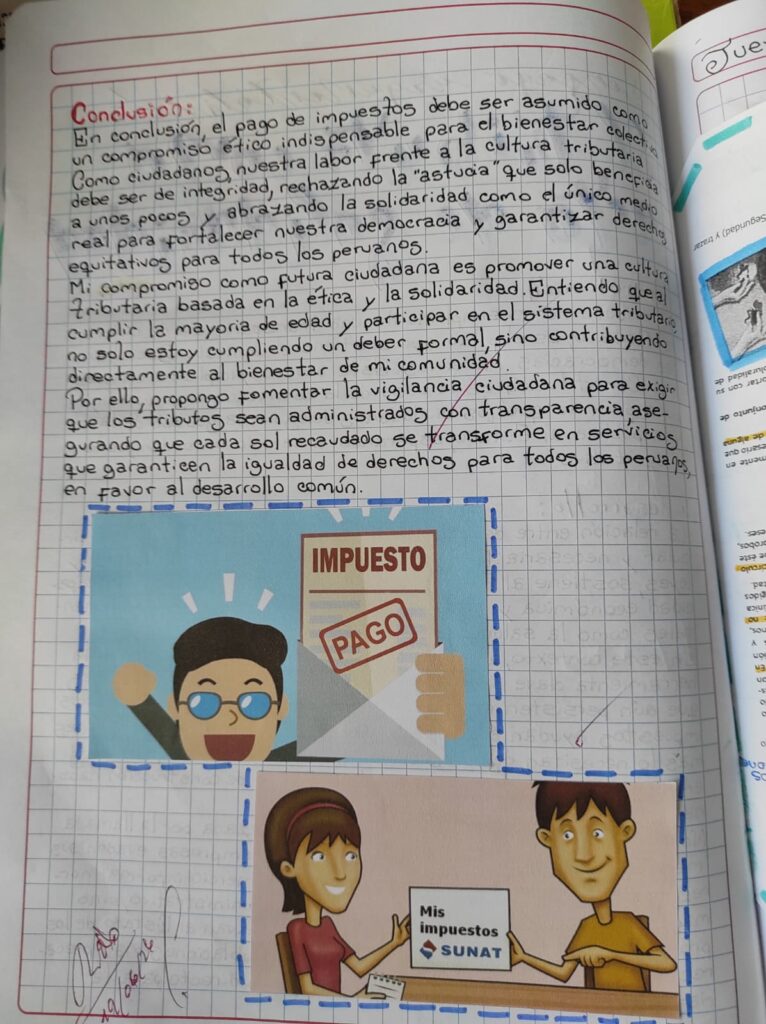 Conclusión:
En conclusión, el pago de impuestos debe ser asumido como
un compromiso ético indispensable para el bienestar colectivo
Como ciudadanos, nuestra labor frente a la cultura tributaria
debe ser de integridad, rechazando la "astucia" que solo beneficia
a unos pocos y abrazando la solidaridad como el único medio
real para fortalecer nuestra democracia y garantizar derechos
equitativos para todos los peruanos.
Mi compromiso como futura ciudadana es promover una cultura
tributaria basada en la ética y la solidaridad. Entiendo que al
cumplir la mayoria de edad y participar en el sistema tributario
no solo estoy cumpliendo un deber formal, sino contribuyendo
directamente al bienestar de mi comunidad.
Por ello, propongo fomentar la vigilancia ciudadana para exigir
que los tributos sean administrados con transparencia, ase-
gurando que cada sol recaudado se transforme en servicios
que garanticen la igualdad de derechos para todos los peruanos,
en favor al desarrollo común.
IMPUESTO
PAGO
Mis
impuestos
SUNAT
Seguridad) y trazar
conjunto de